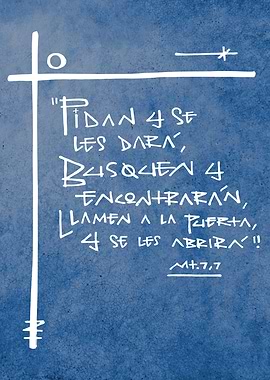 "Pidan y se
les dará,
Busquen y
encontrarán,
Llamen a la Puerta,
y se les abrirá"!!
Mt.7,7